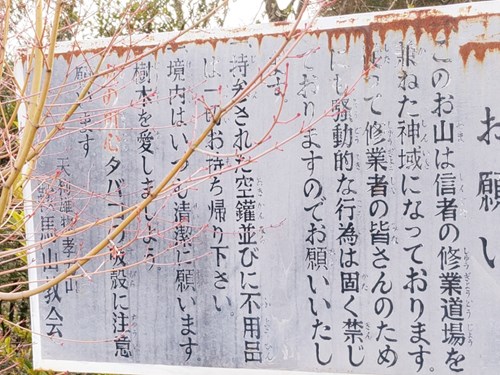 お願い
このお山は信者の修業道場を
兼ねた神域になっております。
従って修業者の皆さんのため
にも騒動的な行為は固く禁じ
ておりますのでお願いいたし
ます。
一、持参された空鑵並びに不用品
は一切お持ち帰り下さい。
一、境内はいつも清潔に願います
樹木を愛しましょう。
火の用心タバコの吸殻に注意
願います
馬山教会